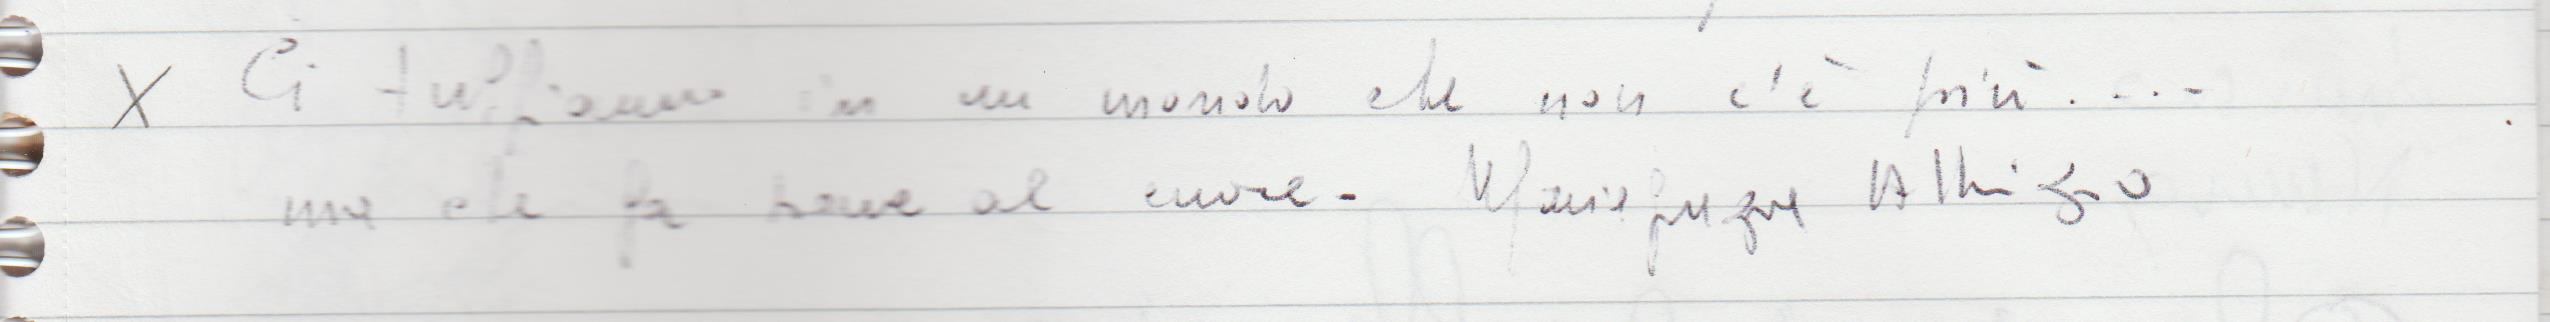 X Ci tuffiamo in un mondo che non c'è più.....
ma che fa bene al cuore-